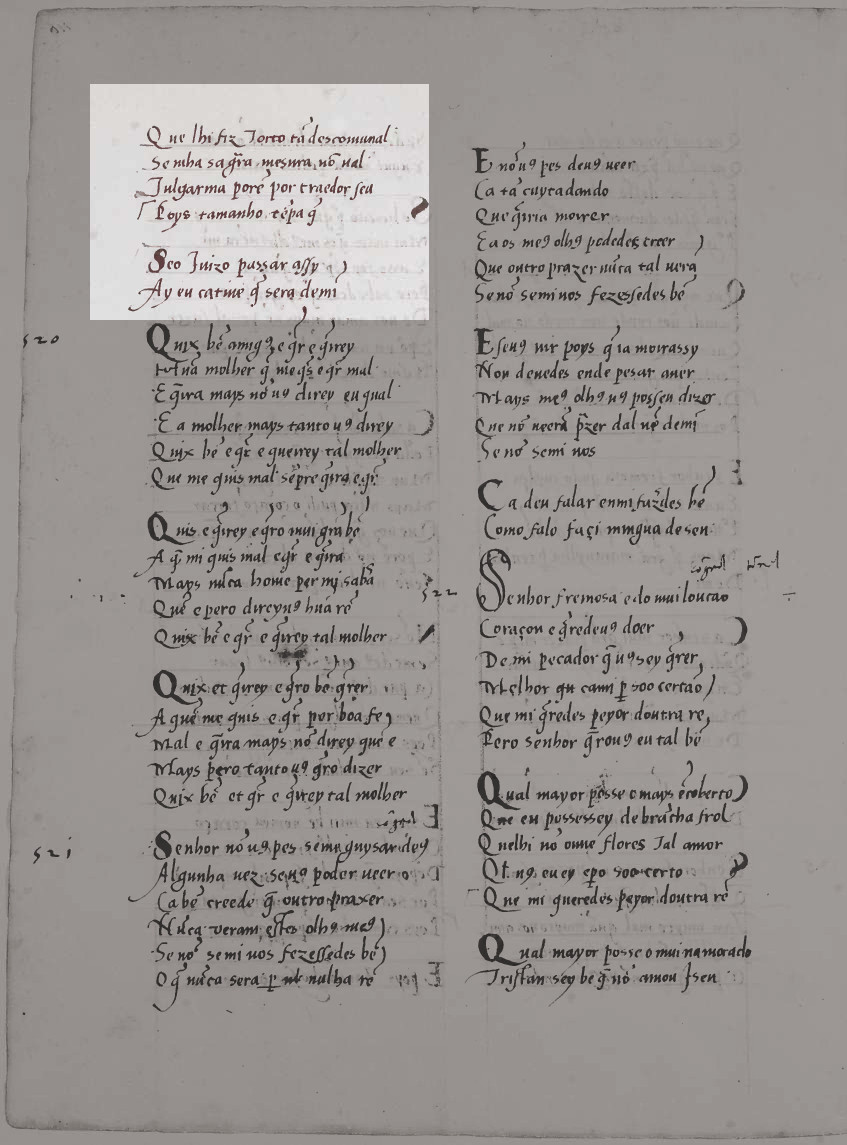 Que lhi fiz Torto tã descomunal
Se mha sa gr̃a mesura nõ ual
Julgarma porẽ por traedor seu
Poys tamanho tẽpa q̃
Seo Juizo passar assy
Ay eu catiue q̃ sera demi
520
Quix bẽ amigꝯ e q̃r e q̃rrey
Hũa molher q̃ me q̃s e q̃r mal
E q̃rra mays nõ uꝯ direy eu qual
E a molher mays tanto uꝯ direy
Quix bẽ e q̃r e querrey tal molher
Que me quis mal sẽpre q̃rra e q̃r
Quis e q̃rrey e q̃ro mui gr̃a bẽ
A q̃ mi quis mal e q̃r e q̃rra
Mays nũca home per mi saba
Quẽ e pero direyuꝯ hũa rẽ
Quix bẽ e q̃r e q̃rrey tal molher
Quix et q̃rrey e q̃ro bẽ q̃rer
A quẽ me quis e q̃r per boa fe
Mal e q̃rra mays nõ direy que e
Mays pero tanto uꝯ q̃ro dizer
Quix bẽ et q̃r e q̃rrey tal molher
521
Senhor nõ uꝯ pes se me guysar deꝯ
Algunha uez se uꝯ poder ueer
Ca bẽ creede q̃ outro prazer
Nũca ueram estes olhꝯ meꝯ
Se nõ se mi uos fezessedes bẽ
O q̃ nũca sera per nulha rẽ
E nõ uꝯ pes deuꝯ ueer
Ca tã cuytadando
Que q̃rria moirer
E a os meꝯ olhꝯ podedes creer
Que outro prazer nũca tal uera
Se nõ se mi uos fezessedes bẽ
E seuꝯ uir poys q̃ ia moirassy
Non deuedes ende pesar auer
Mays meꝯ olhꝯ uꝯ posseu dizer
Que nõ ueerã pr̃zer dal nẽ demi
Se nõ se mi uos
Ca deu falar en mi fazꝰdes bẽ
Como falo façi mingua de sen
522
Senhor fremosa e do mui loução
Coraçon e q̃redeuꝯ doer
De mi pecador q̃ uꝯ sey q̃rer
Melhor qu cami ꝑ soo certão
Que mi q̃redes peyor doutra rẽ
Pero senhor q̃rouꝯ eu tal bẽ
Qual mayor posse o mays ẽcoberto
Que eu possessey de brãcha frol
Quelhi nõ ouue flores Tal amor
Qual uꝯ eu ey epo soo certo
Que mi queredes peyor doutra rẽ
Qual mayor posse o mui namorado
Tristan sey bẽ q̃ nõ amou Jseu